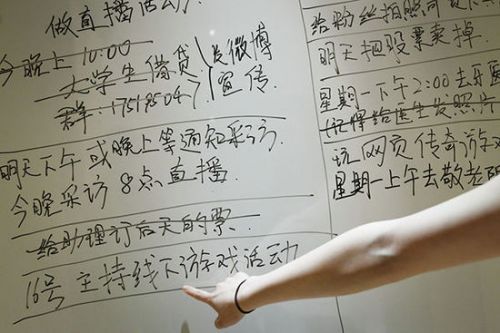 做直播活动
今晚上10:00
大学生借贷
群:
发微博
宣传
明天下午或晚上等通知采访
今晚采访 8点直播
给助理订后天的票
16号 主持线下游戏活动
给粉丝拍照
明天把股票卖掉
星期一下午2:00去
(记得给医生发照片
玩网页传奇游
星期一上午去敬老